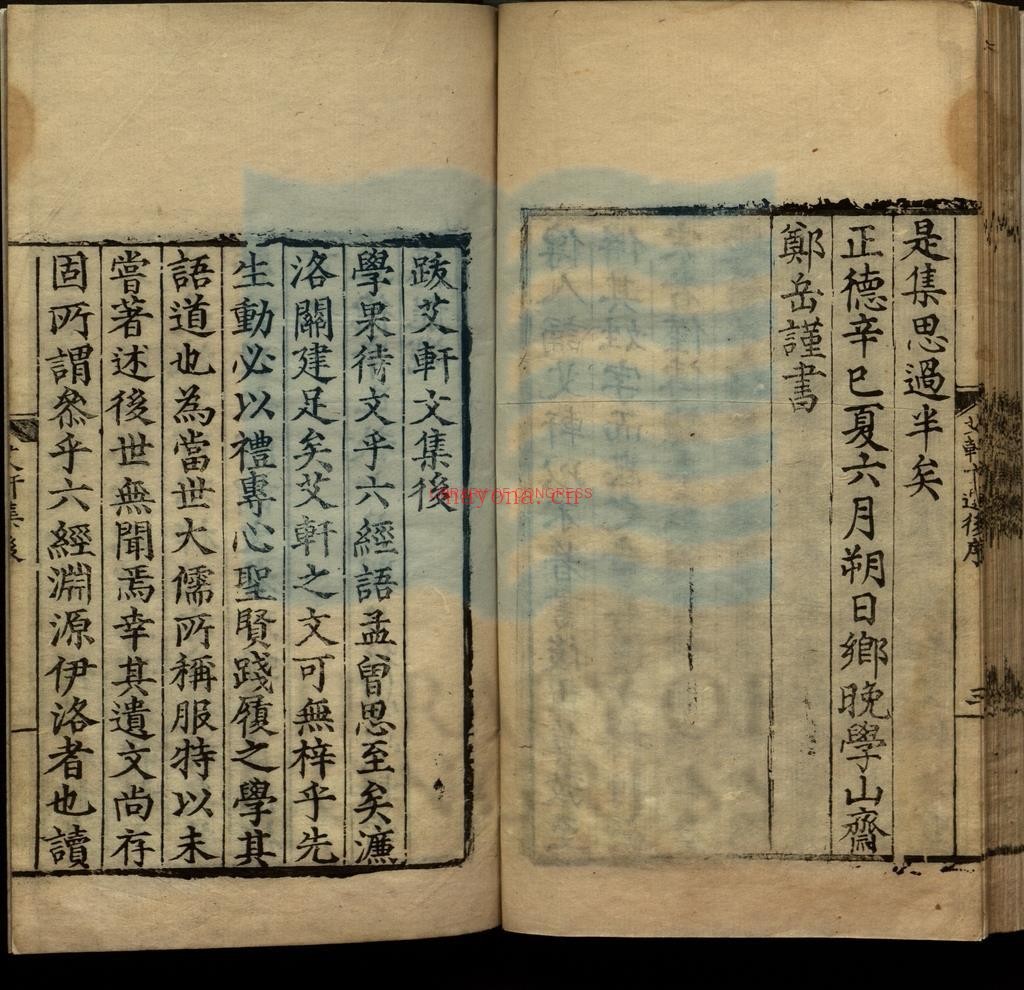 是集思過半矣
正德辛巳夏六月朔日鄉晚學山齋
鄭岳謹書
三
跋艾軒文集後
學果待文乎六經語孟曾思至矣濂
洛關建足矣艾軒之文可無梓乎先
生動必以禮專心聖賢踐履之學其
語道也為當世大儒所稱服特以未
嘗著述後世無聞焉幸其遺文尚存
固所謂叅乎六經淵源伊洛者也讀
LIBRARY OF CONGRESS